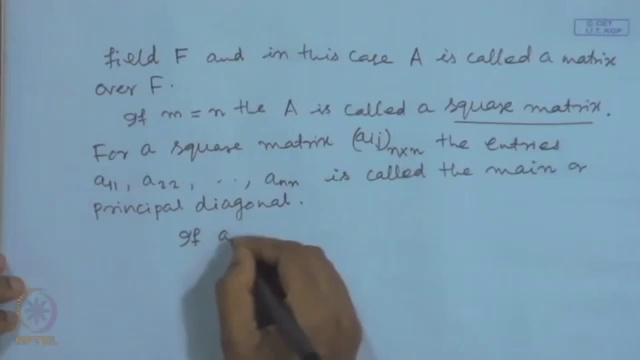 © CET
I.I.T. KGP
field F and in this case A is called a matrix
over F.
If m = n the A is called a square matrix.
For a square matrix (aij)n×n the entries
a11, a22, .., ann is called the main or
principal diagonal.
If a
NPTEL